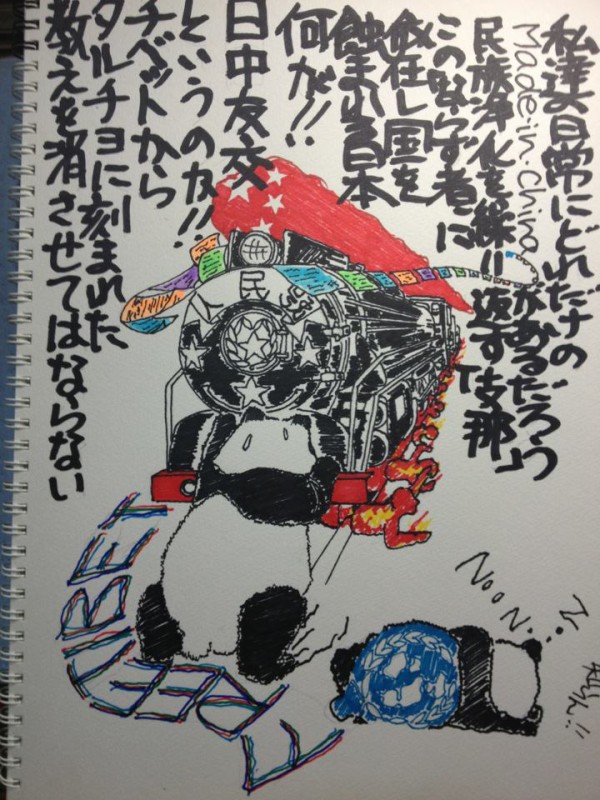 私達の日常にどれだけの
Made-in-chinaがあるだろう
民族浄化を繰り返す「支那」
このならず者に
依存し国を
蝕まれる日本
何が!!
日中友交
というのか!!
チベットから
タルチョに刻まれた
教えを消させてはならない
人民
FREE TIBET